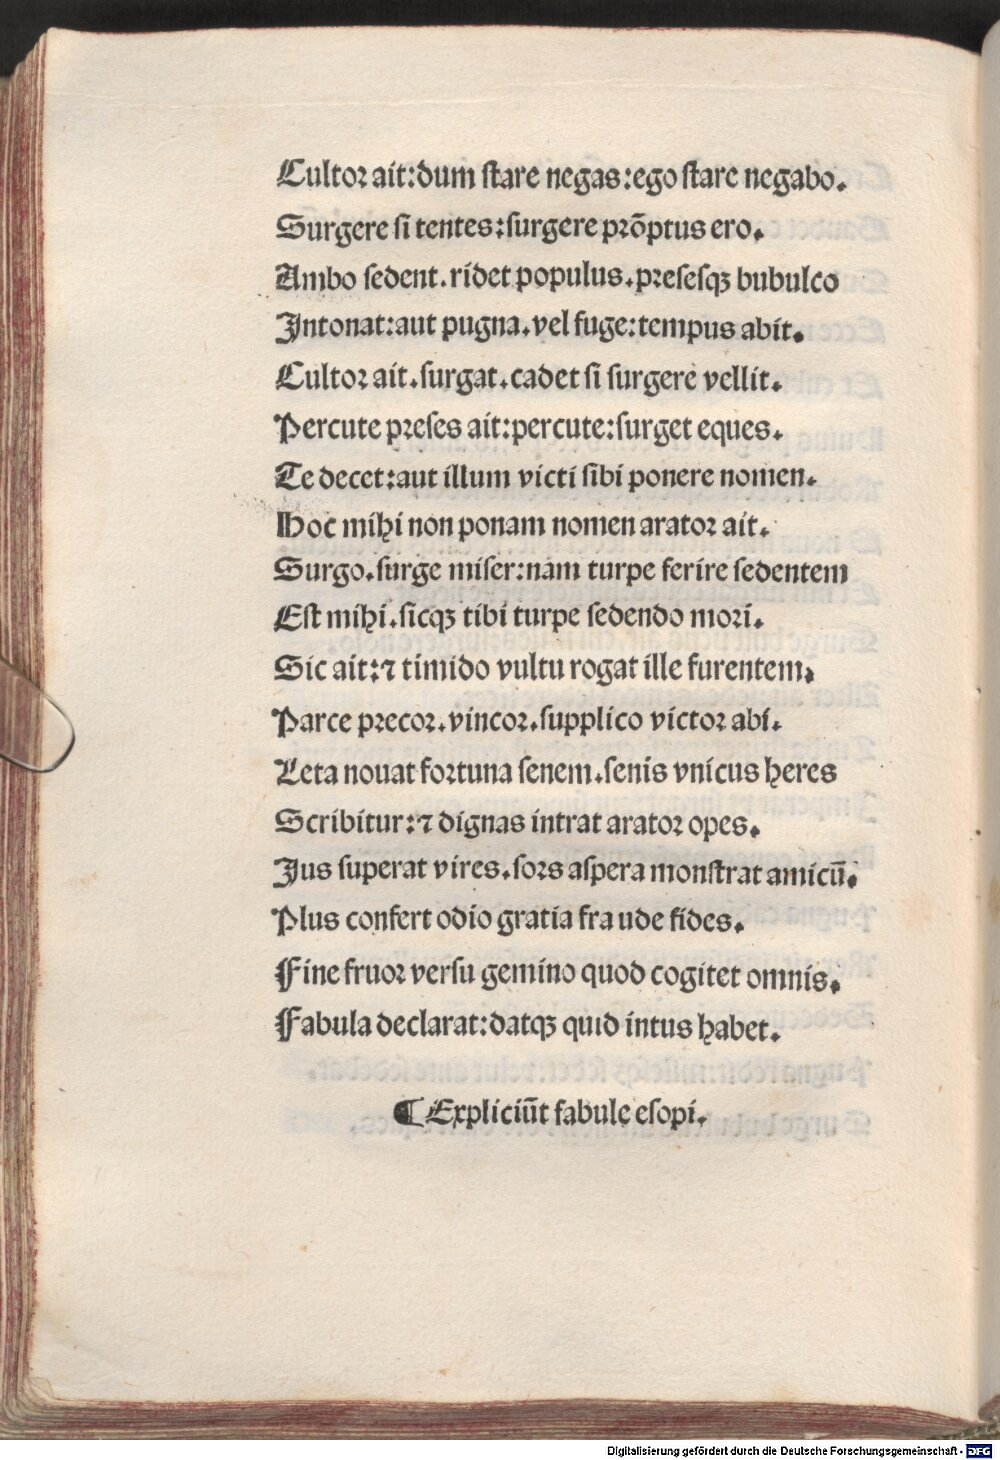 Cultoꝛ ait:dum ſtare negas:ego ſtare negabo.
Surgere ſi tentes:ſurgere pꝛõptus ero.
Ambo ſedent.ridet populus.pꝛeſeſqꝫ bubulco
Intonat:aut pugna.vel fuge:tempus abit.
Cultoꝛ ait.ſurgat.cadet ſi ſurgere vellit.
Percute pꝛeſes ait:percute:ſurget eques.
Te decet:aut illum victi ſibi ponere nomen.
Hoc mihi non ponam nomen aratoꝛ ait.
Surgo.ſurge miſer:nam turpe ferire ſedentem
Eſt mihi.ſicqꝫ tibi turpe ſedendo moꝛi.
Sic ait:⁊ timido vultu rogat ille furentem.
Parce pꝛecoꝛ.vincoꝛ.ſupplico victoꝛ abi.
Leta nouat foꝛtuna ſenem.ſenis vnicus heres
Scribitur:⁊ dignas intrat aratoꝛ opes.
Jus ſuperat vires.ſoꝛs aſpera monſtrat amicū.
Plus confert odio gratia fra ude fides.
Fine fruoꝛ verſu gemino quod cogitet omnis.
Fabula declarat:datqꝫ quid intus habet.
¶ Expliciūt fabule eſopi.
Digitalisierung gefördert durch die Deutsche Forschungsgemeinschaft - DFG